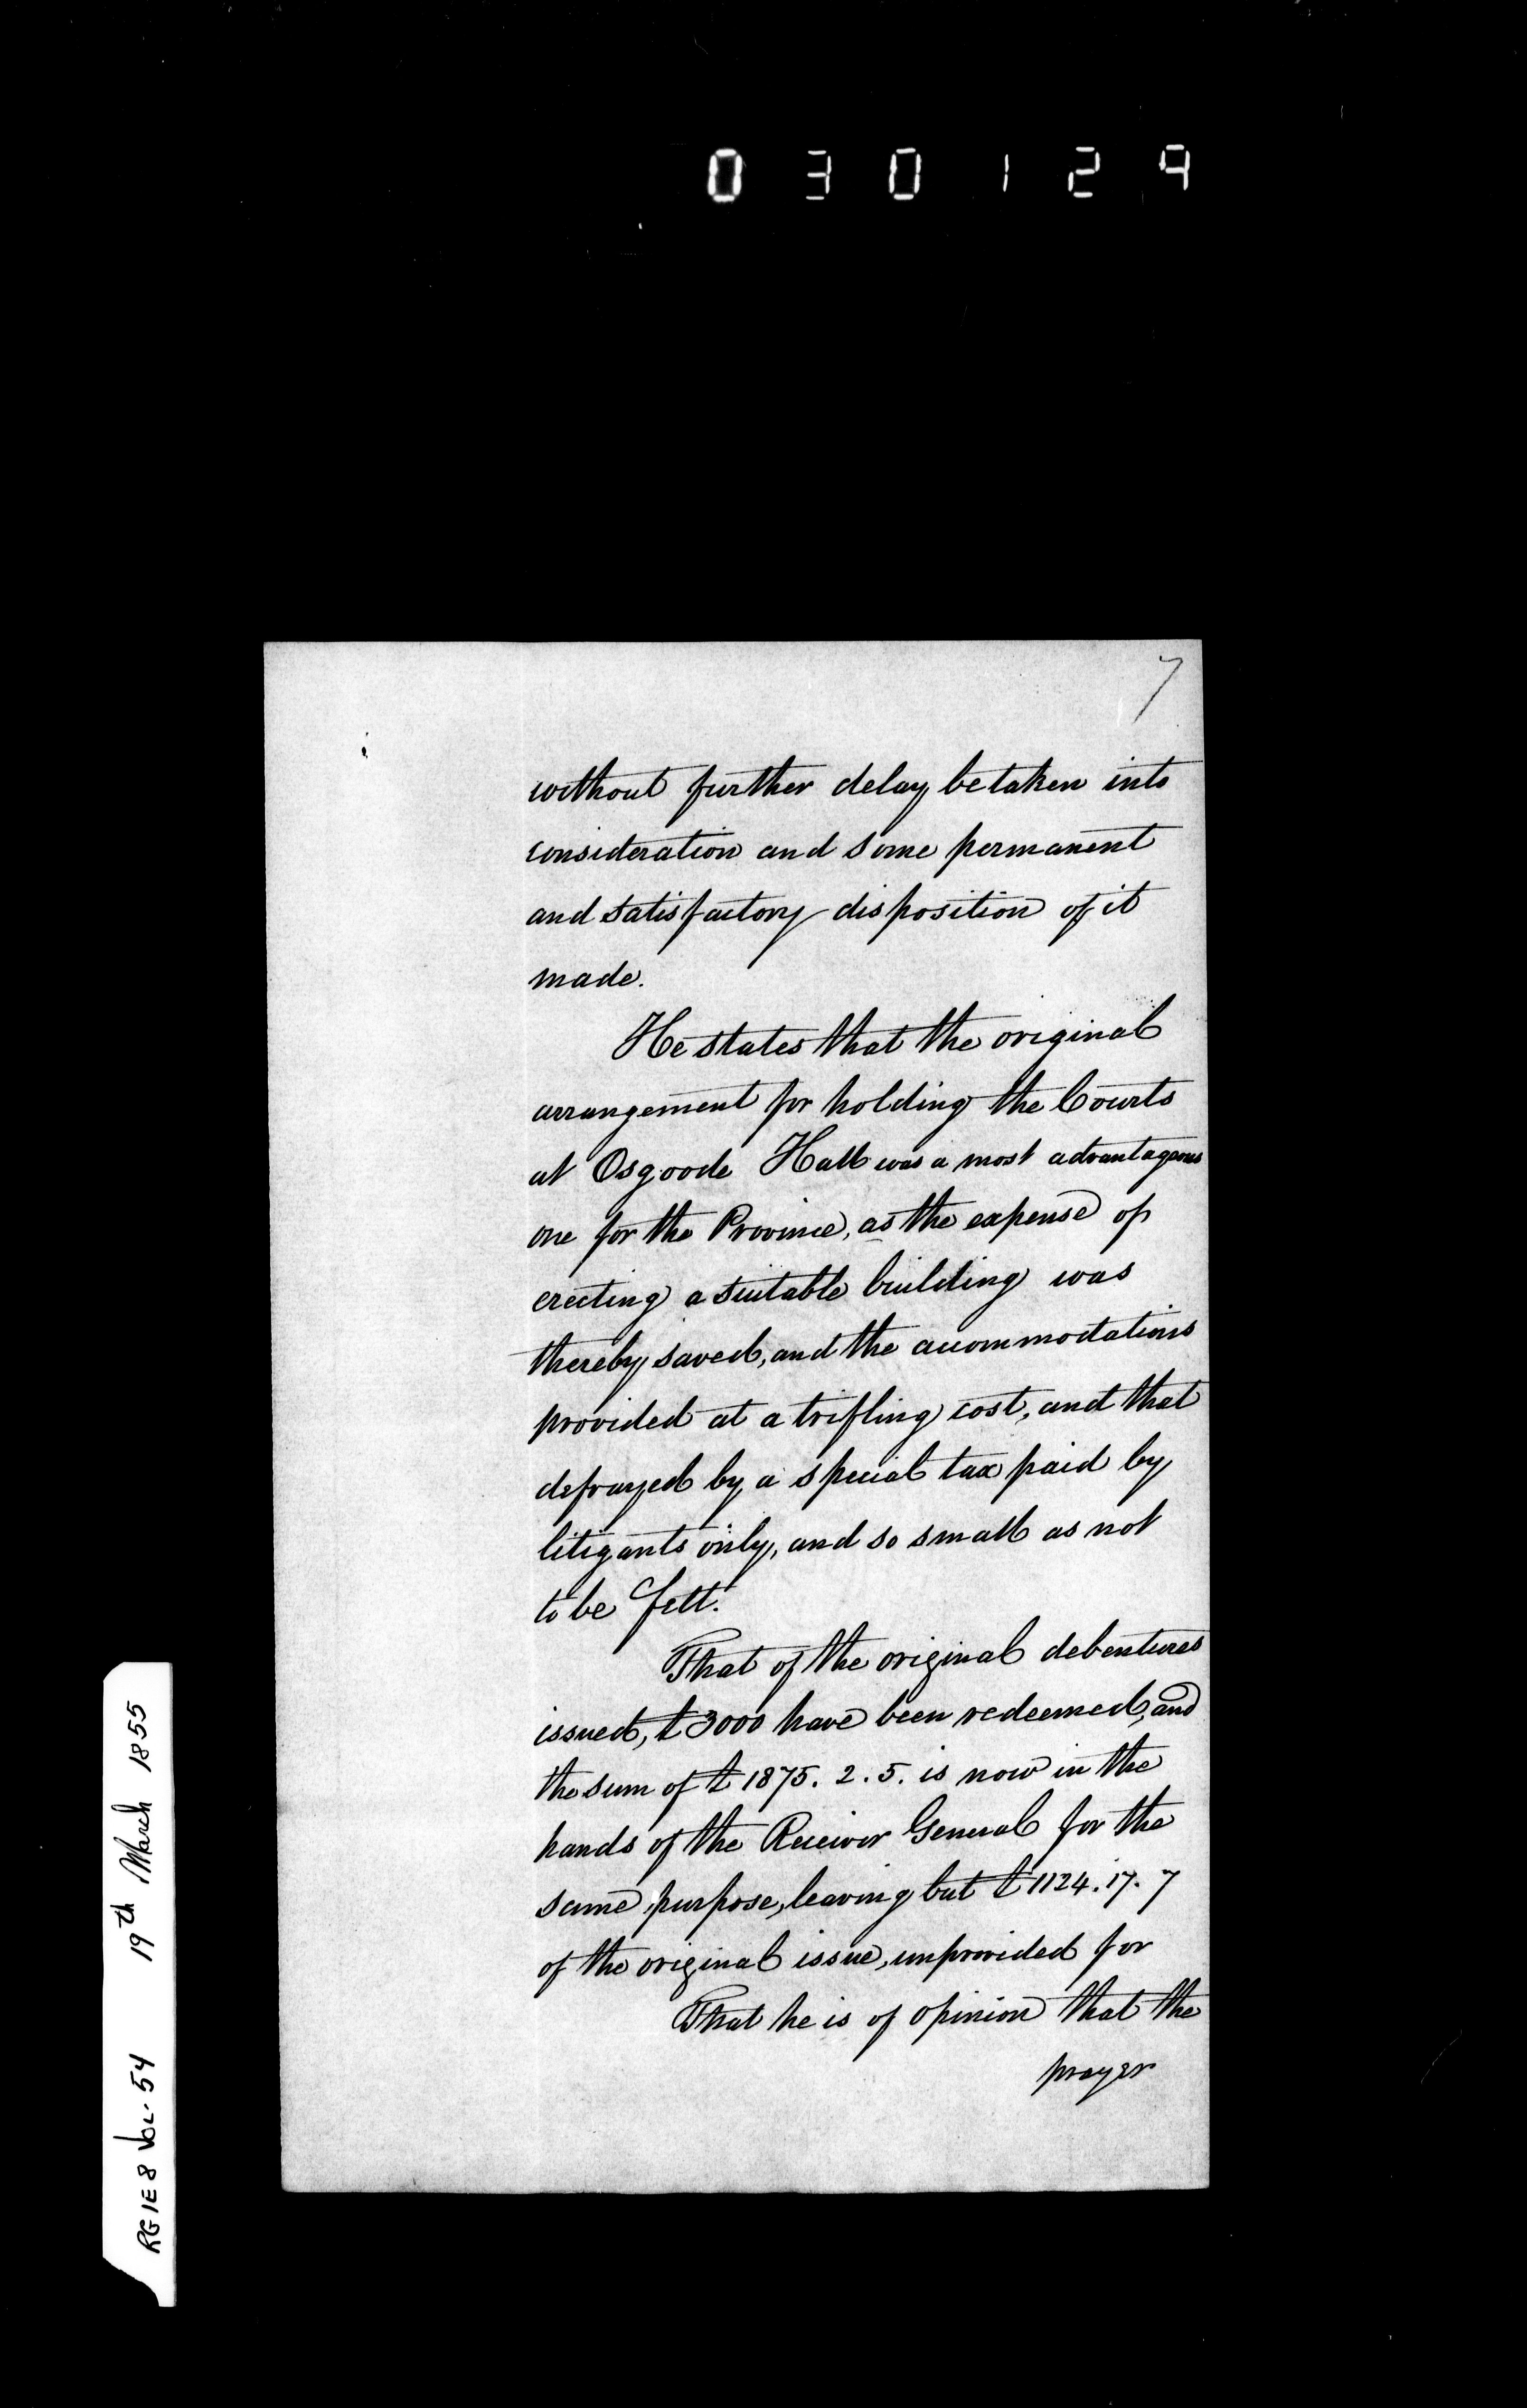 030129
7
without further delay be taken into
consideration and some permanent
and satisfactory disposition of it
made.
He states that the original
arrangement for holding the Courts
at Osgoode Hall was a most advantageous
one for the Province, as the expense of
erecting a suitable building was
thereby saved, and the accommodations
provided at a trifling cost, and that
defrayed by a special tax paid by
litigants only, and so small as not
to be felt.
That of the original debentures
issued, £3000 have been redeemed, and
the sum of £1875. 2. 5. is now in the
hands of the Receiver General for the
same purpose, leaving but £1124. 17. 7
of the original issue, unprovided for
That he is of opinion that the
prayer
RG 1 E 8 Vol. 54 19th March 1855